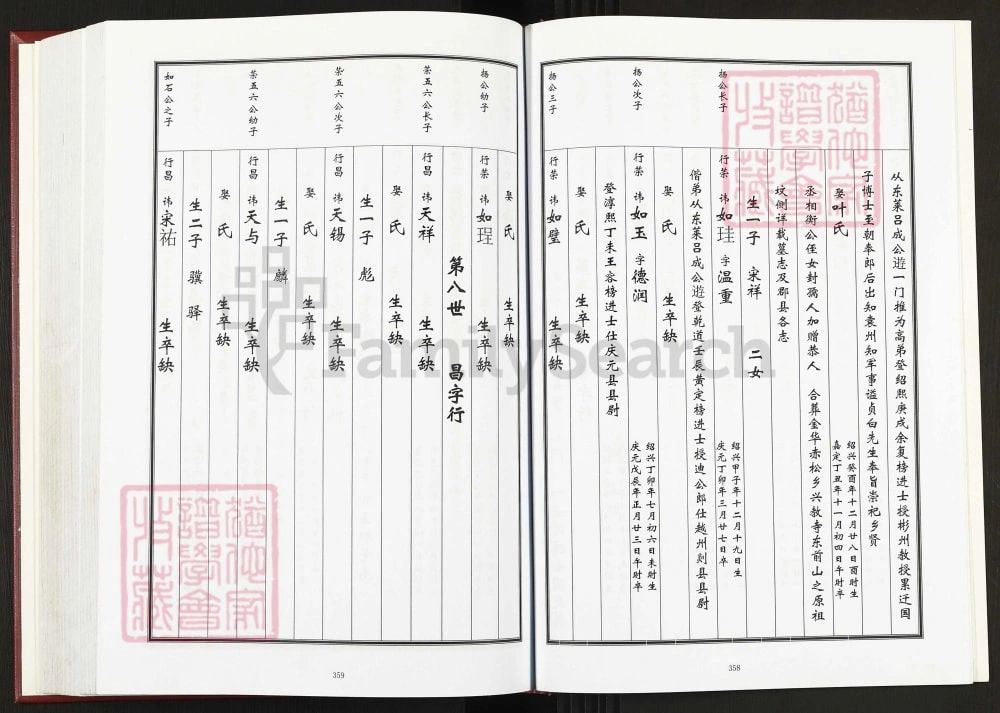 从东莱吕成公遊一门推为高弟登绍熙庚戌余复榜进士授彬州教授累迁国
子博士至朝奉郎后出知袁州知军事谥贞白先生奉旨崇祀乡贤
娶叶氏
绍兴癸酉年十二月廿八日酉时生
嘉定丁丑年十一月初四日午时卒
丞相衡公侄女封孺人加赠恭人 合葬金华赤松乡兴教寺东前山之原祖
坟侧详载墓志及郡县各志
生一子 宋祥 二女
扬公长子
行荣 讳如珪 字温重
绍兴甲子年十二月十九日生
庆元丁卯年三月廿七日卒
偕弟从东莱吕成公遊登乾道壬辰黄定榜进士授迪公郎仕越州剡县县尉
娶 氏 生卒缺
扬公次子
行荣 讳如玉 字德润
绍兴丁卯年七月初六日未时生
庆元戊辰年正月廿三日午时卒
登淳熙丁未王容榜进士仕庆元县县尉
娶 氏 生卒缺
扬公三子
行荣 讳如璧 生卒缺
娶 氏 生卒缺
扬公幼子
行荣 讳如珵 生卒缺
第八世 昌字行
荣五六公长子
行昌 讳天祥 生卒缺
娶 氏 生卒缺
生一子 彪
荣五六公次子
行昌 讳天锡 生卒缺
娶 氏 生卒缺
生一子 麟
荣五六公幼子
行昌 讳天与 生卒缺
娶 氏 生卒缺
生二子 骥 驿
如石公之子
行昌 讳宋祐 生卒缺
358
359
FamilySearch